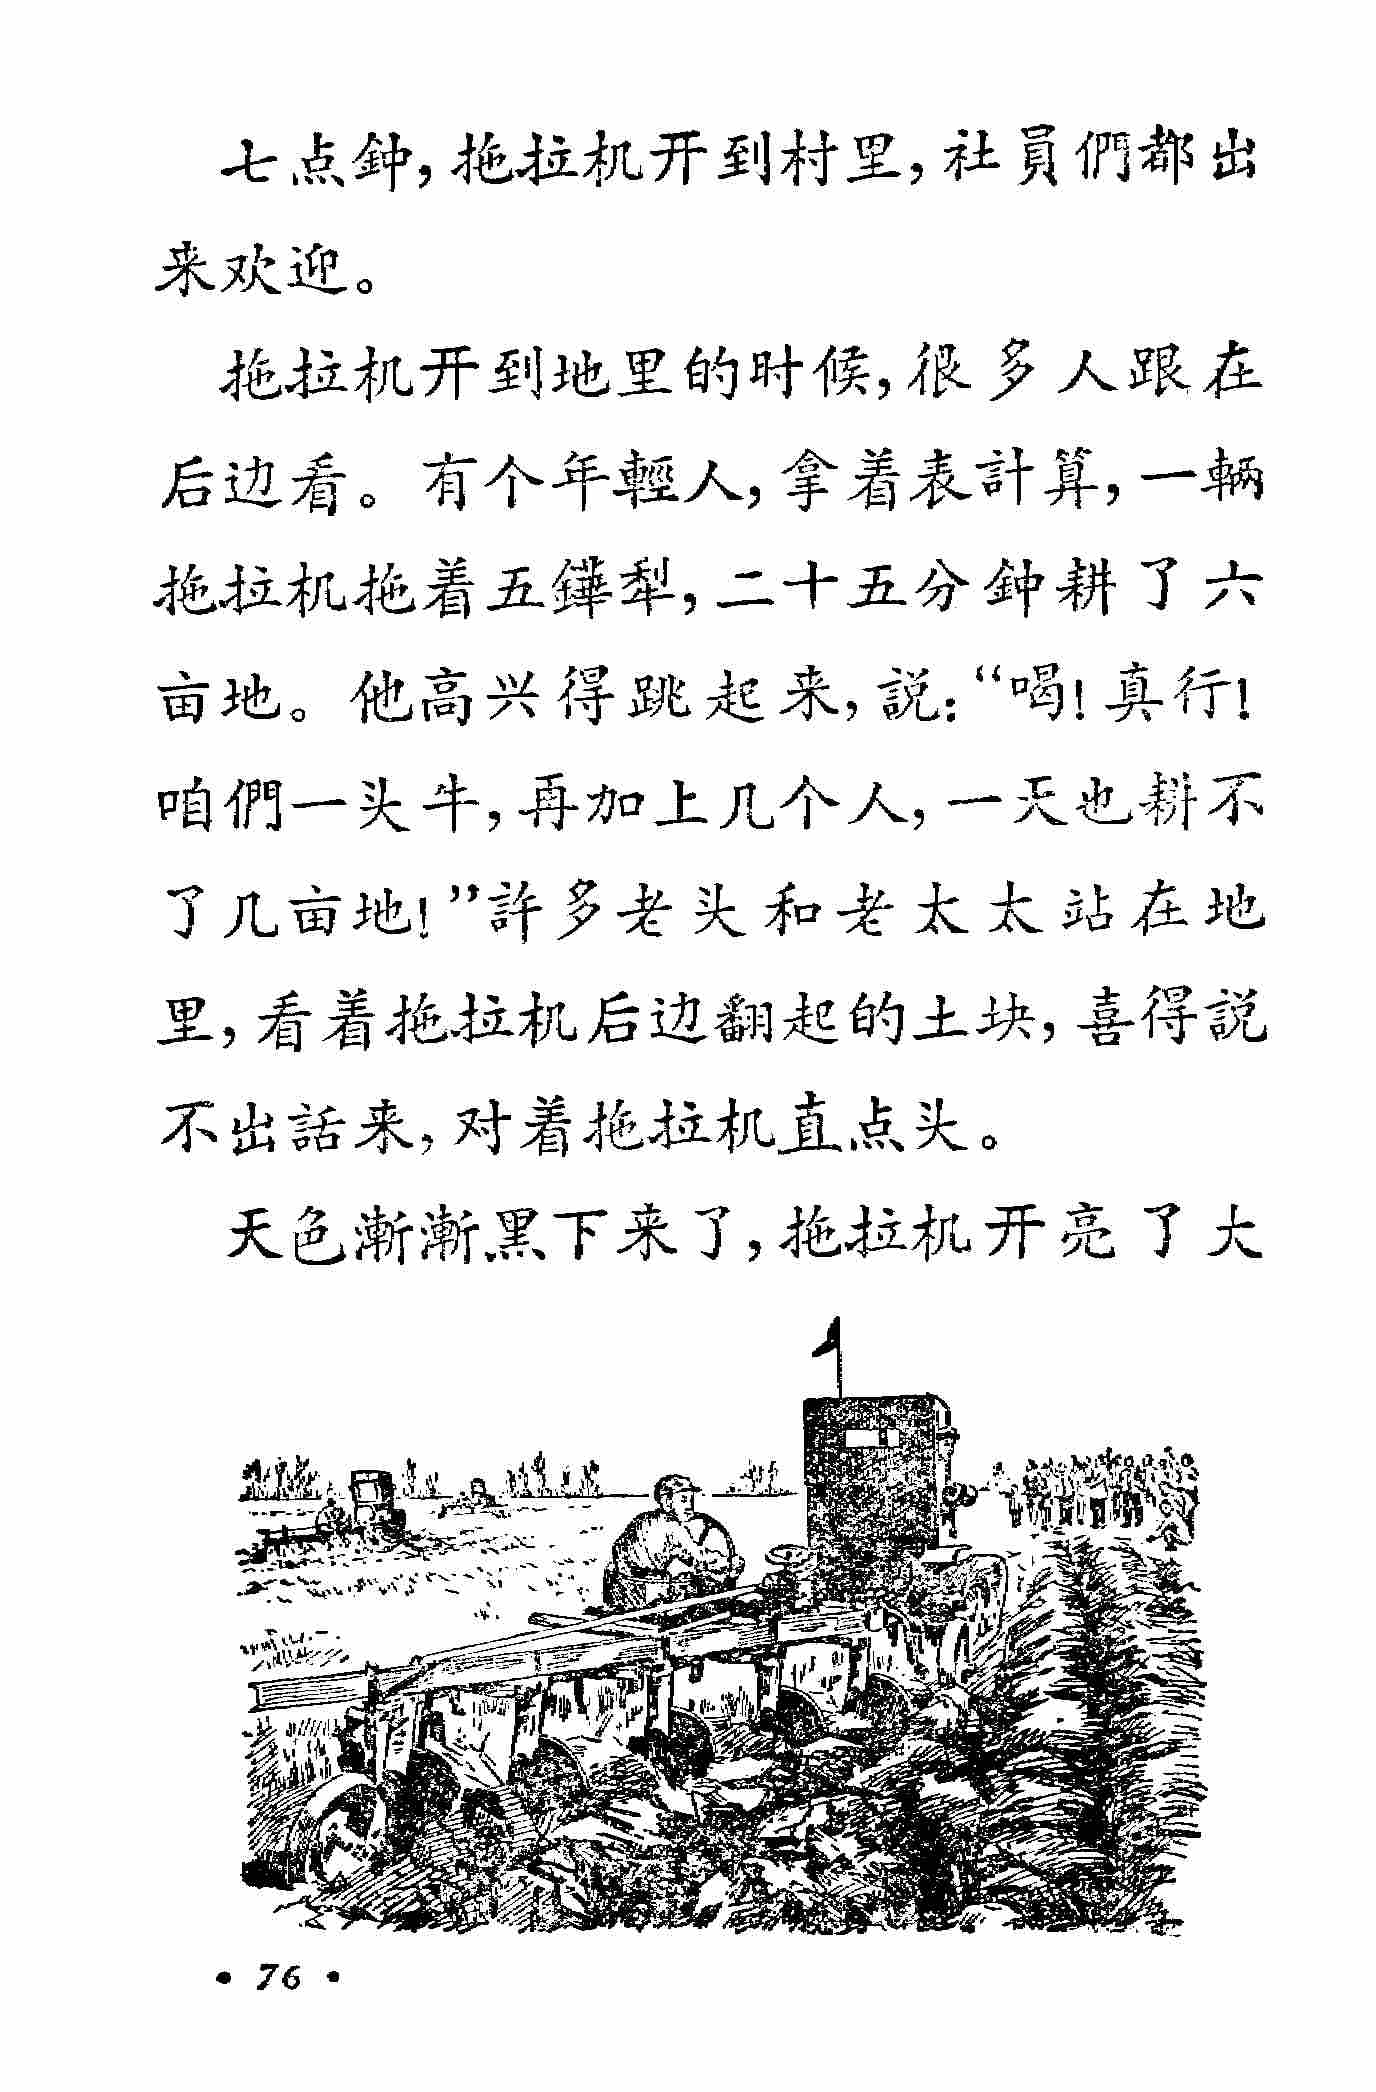 七点鈡，拖拉机开到村里，社員們都出
来欢迎。
拖拉机开到地里的时候，很多人跟在
后边看。有个年輕人，拿着表計算，一輛
拖拉机拖着五鏵犁，二十五分鈡耕了六
亩地。他高兴得跳起来，説：“喝！真行！
咱們一头牛，再加上几个人，一天也耕不
了几亩地！”許多老头和老太太站在地
里，看着拖拉机后边翻起的土块，喜得説
不出話来，对着拖拉机直点头。
天色漸漸黑下来了，拖拉机开亮了大
• 76 •